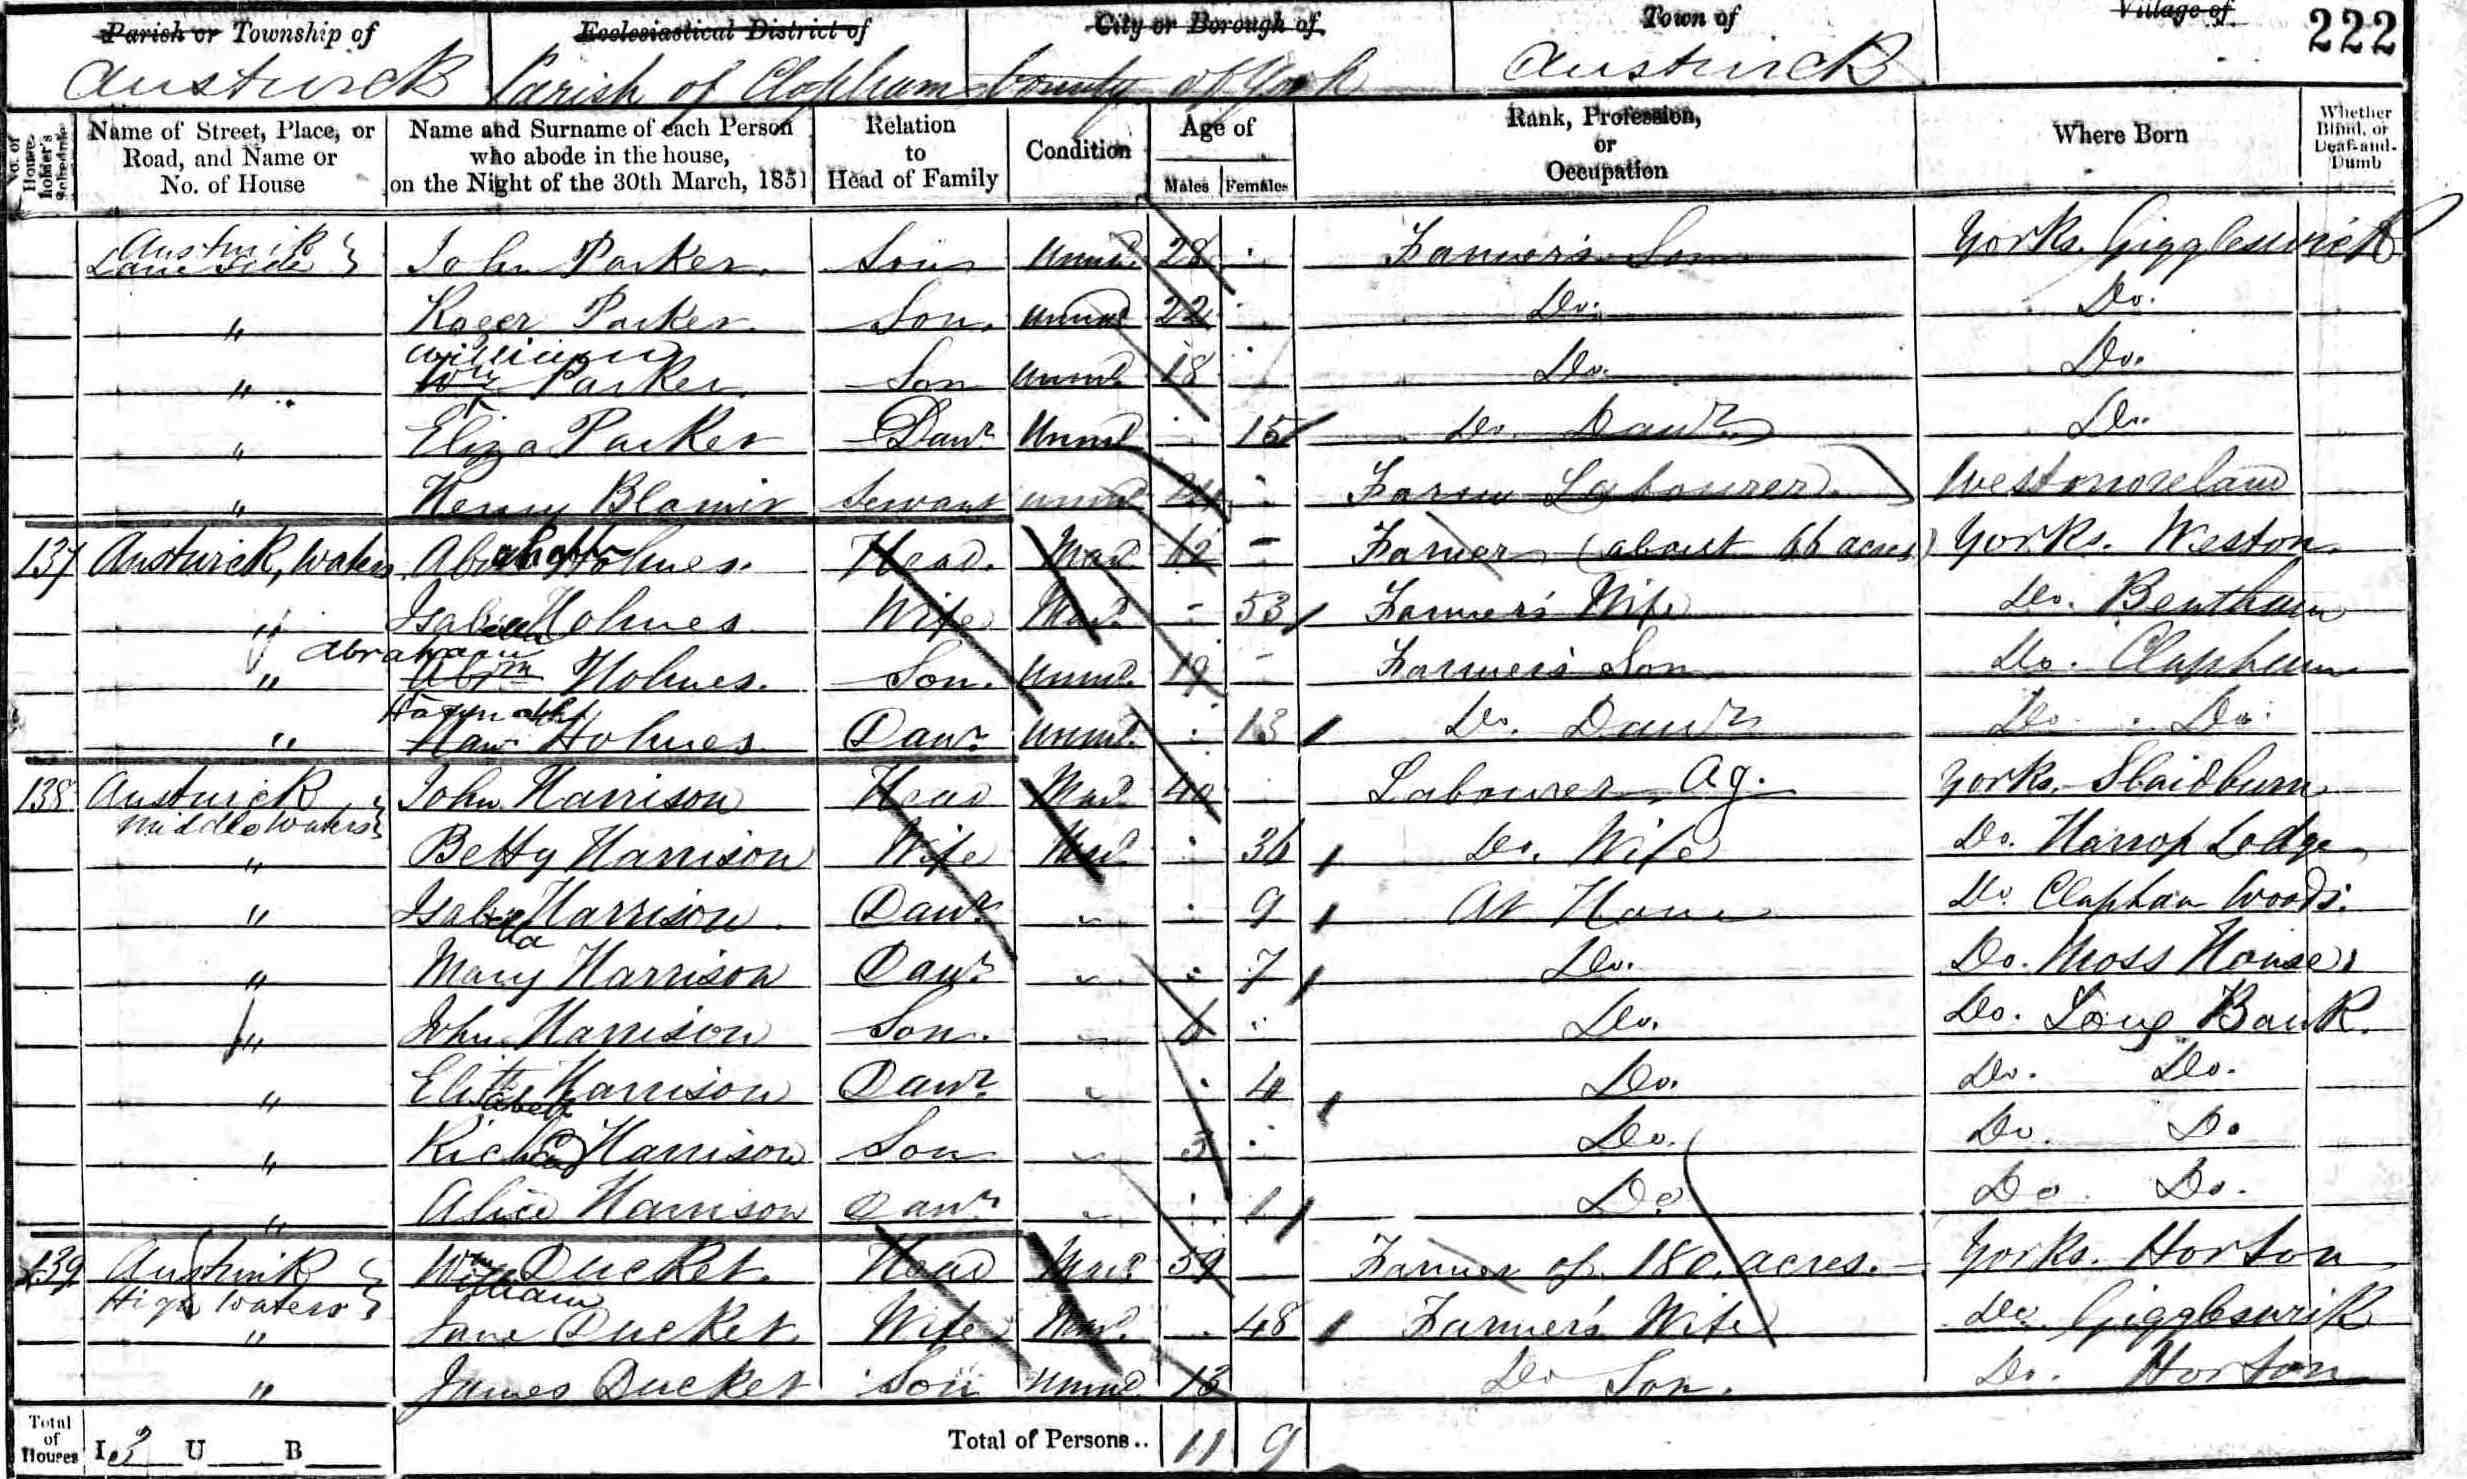 Parish or Township of Ecclesiastical District of City or Borough of Town of Village of 222
Austwick Parish of Clapham County of York Austwick
No. of House-holder's Schedule
Name of Street, Place, or Road, and Name or No. of House
Name and Surname of each Person who abode in the house, on the Night of the 30th March, 1851
Relation to Head of Family
Condition
Age of
Males Females
Rank, Profession, or Occupation
Where Born
Whether Blind, or Deaf-and-Dumb
Austwick Lane Side } John Parker. Son Unmd. 28 Farmer's Son Yorks. Giggleswick
" Roger Parker. Son. Unmd 22 Do. Do.
" William Wm Parker. Son Unmd. 18 Do. Do.
" Eliza Parker Daur Unmd 15 Do. Daur Do.
" Henry Blamir Servant Unmd Farm Labourer Westmoreland
137 Austwick, Waters Holmes. Head. Mad. 62 - Farmer (about 66 acres) Yorks. Weston
" Isabella Holmes Wife Mad. - 53 Farmer's Wife Do. Bentham
" Abraham Abrm Holmes. Son. Unmd. 19 - Farmer's Son Do. Clapham
" Hannah Han. Holmes Daur Unmd. 13 Do. Daur Do. Do.
138 Austwick Middle Waters } John Harrison Head Mad. 40 Labourer Ag. Yorks. Slaidburn
" Betty Harrison Wife Mad. 36 Do. Wife Do. Harrop Lodge
" Isabella Harrison. Daur 9 At Home Do. Clapham Woods.
" Mary Harrison Daur 7 Do. Do. Moss House
" John Harrison Son. 6 Do. Do. Long Bank.
" Elizabeth Harrison Daur 4 Do. Do. Do.
" Richd Harrison Son 3 Do. Do. Do
" Alice Harrison Daur 1 Do Do. Do.
139 Austwick High Waters } Wm William Ducket. Head Mard 59 Farmer of 180 acres. Yorks. Horton
" Jane Ducket. Wife Mad. 48 Farmer's Wife Do. Giggleswick
" James Ducket Son Unmd. 13 Do Son. Do. Horton
Total of Houses I 3 U B Total of Persons.. 11 9